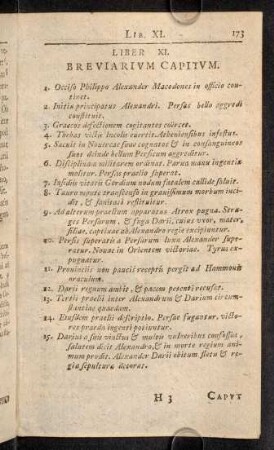 LIB. XI. 173
LIBER XI.
BREVIARIVM CAPITVM.
1. Occiso Philippo Alexander Macedones in officio con-
tinet.
2. Initia principatus Alexandri. Persas bello aggredi
constituit.
3. Graecos defectionem cogitantes coërcet.
4. Thebas victis incolis evertit. Atheniensibus infestus.
5. Saeuit in Nouercae suae cognatos & in consanguineos
suos deinde bellum Persicum aggreditur.
6. Disciplinam militarem ordinat. Parua manu ingentia
molitur. Persas praelio superat.
7. Insidiis vitatis Gordium nodum fatalem callide soluit.
8. Tauro monte transito is in grauissimum morbum inci-
dit, & sanitati restituitur.
9. Ad alterum praelium apparatus Atrox pugna. Stra-
ges Persarum, & fuga Darii, cuius vxor, mater,
filiae, captiuae ab Alexandro regie excipiuntur.
10. Persis superatis a Persarum luxu Alexander supe-
ratur. Nouae in Orientem victoriae. Tyrus ex-
pugnatur.
11. Prouinciis non paucis receptis pergit ad Hammonis
oraculum.
12. Darii regnum ambit, & pacem petenti recusat.
13. Tertii praelii inter Alexandrum & Darium circum-
stantiae quaedam.
14. Eiusdem praelii descriptio. Persae fugantur. victo-
res praeda ingenti potiuntur.
15. Darius a suis vinctus & multis vulneribus confossus,
salutem dicit Alexandro, & in morte regium ani-
mum prodit. Alexander Darii obitum fletu & re-
gia sepultura decorat.
H 3 CAPVT